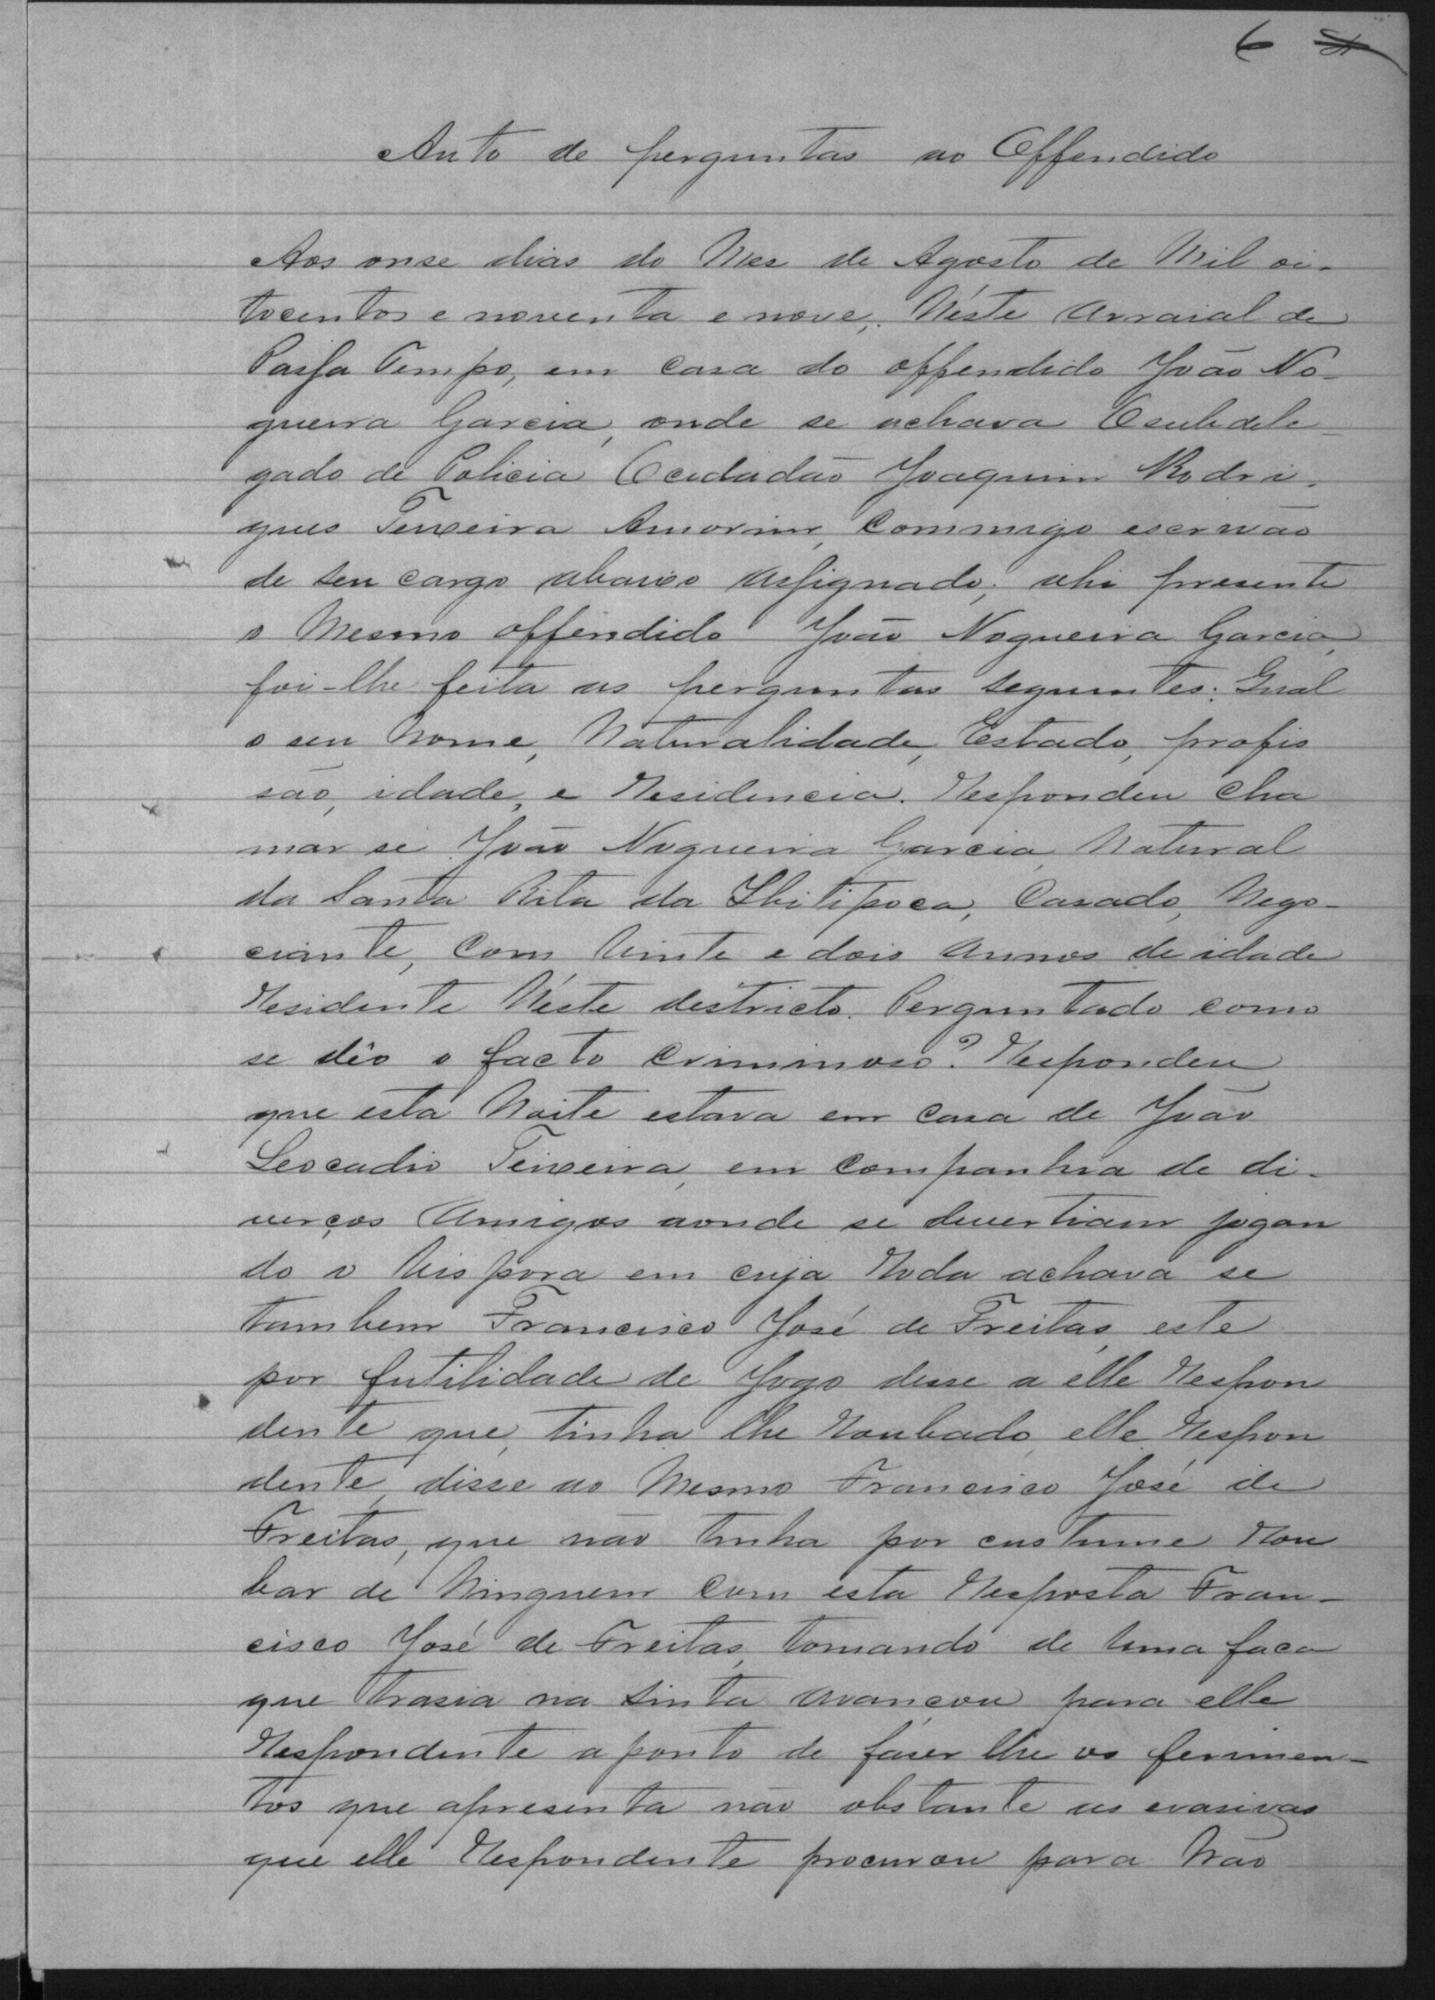 6
Auto de perguntas ao Offendido
Aos onse dias do Mes de Agosto de Mil oi-
tocentos e noventa e nove, Néste Arraial de
Passa Tempo, em casa do offendido João No-
gueira Garcia, onde se achava O subdele-
gado de Policia O cidadão Joaquim Rodri-
gues Teixeira Amorim, Commigo escrivão
de seu cargo abaixo assignado; ahi presente
o Mesmo offendido João Nogueira Garcia,
foi-lhe feita as perguntas seguintes: Qual
o seu Nome, Naturalidade, Estado, profis
são, idade, e Residencia. Respondeu Cha
mar se João Nogueira Garcia, Natural
da Santa Rita da Ibitipoca, Casado, Nego-
ciante, Com Vinte e dois Annos de idade
Residente Néste districto. Perguntado como
se dêo o facto Criminoso? Respondeu
que esta Noite estava em casa de João
Leocadio Teixeira, em Companhia de di-
verços Amigos aonde se devertiam jogan
do o Vispora em cuja Roda achava se
tambem Francisco José de Freitas, este
por futilidade de Jogo disse a elle Respon
dente que, tinha lhe Roubado, elle Respon
dente, disse ao Mesmo Francisco José de
Freitas, que não tinha por custume Rou
bar de Ninguem Com esta Resposta Fran-
cisco José de Freitas, tomando de uma faca
que trasia na Sinta avançou para elle
Respondente a ponto de faser lhe os ferimen-
tos que apresenta não obstante as evasivas
que elle Respondente procurou para Não